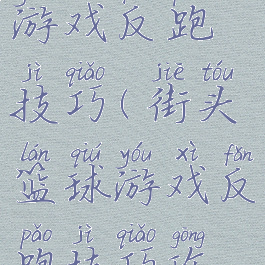 游戏反跑
jì qiǎo jiē tóu
技巧(街头
lán qiú yóu xì fǎn
篮球游戏反
pǎo jì qiǎo gōng
跑技巧攻